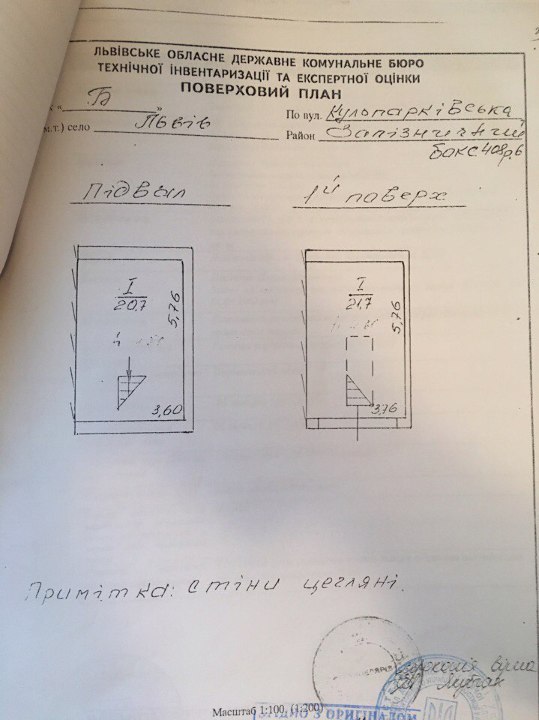 ЛЬВІВСЬКЕ ОБЛАСНЕ ДЕРЖАВНЕ КОМУНАЛЬНЕ БЮРО
ТЕХНІЧНОЇ ІНВЕНТАРИЗАЦІЇ ТА ЕКСПЕРТНОЇ ОЦІНКИ
ПОВЕРХОВИЙ ПЛАН
« Б » По вул. Кульпарківська
м.т.) село Львів Район Залізничний
бокс 408 р.6
Підвал 1й поверх
I I
20,7 21,7
5,76 5,76
3,60 3,76
Примітка: стіни цегляні.
копія вірна
Масштаб 1:100, (1:200)
З ОРИГІНАЛОМ